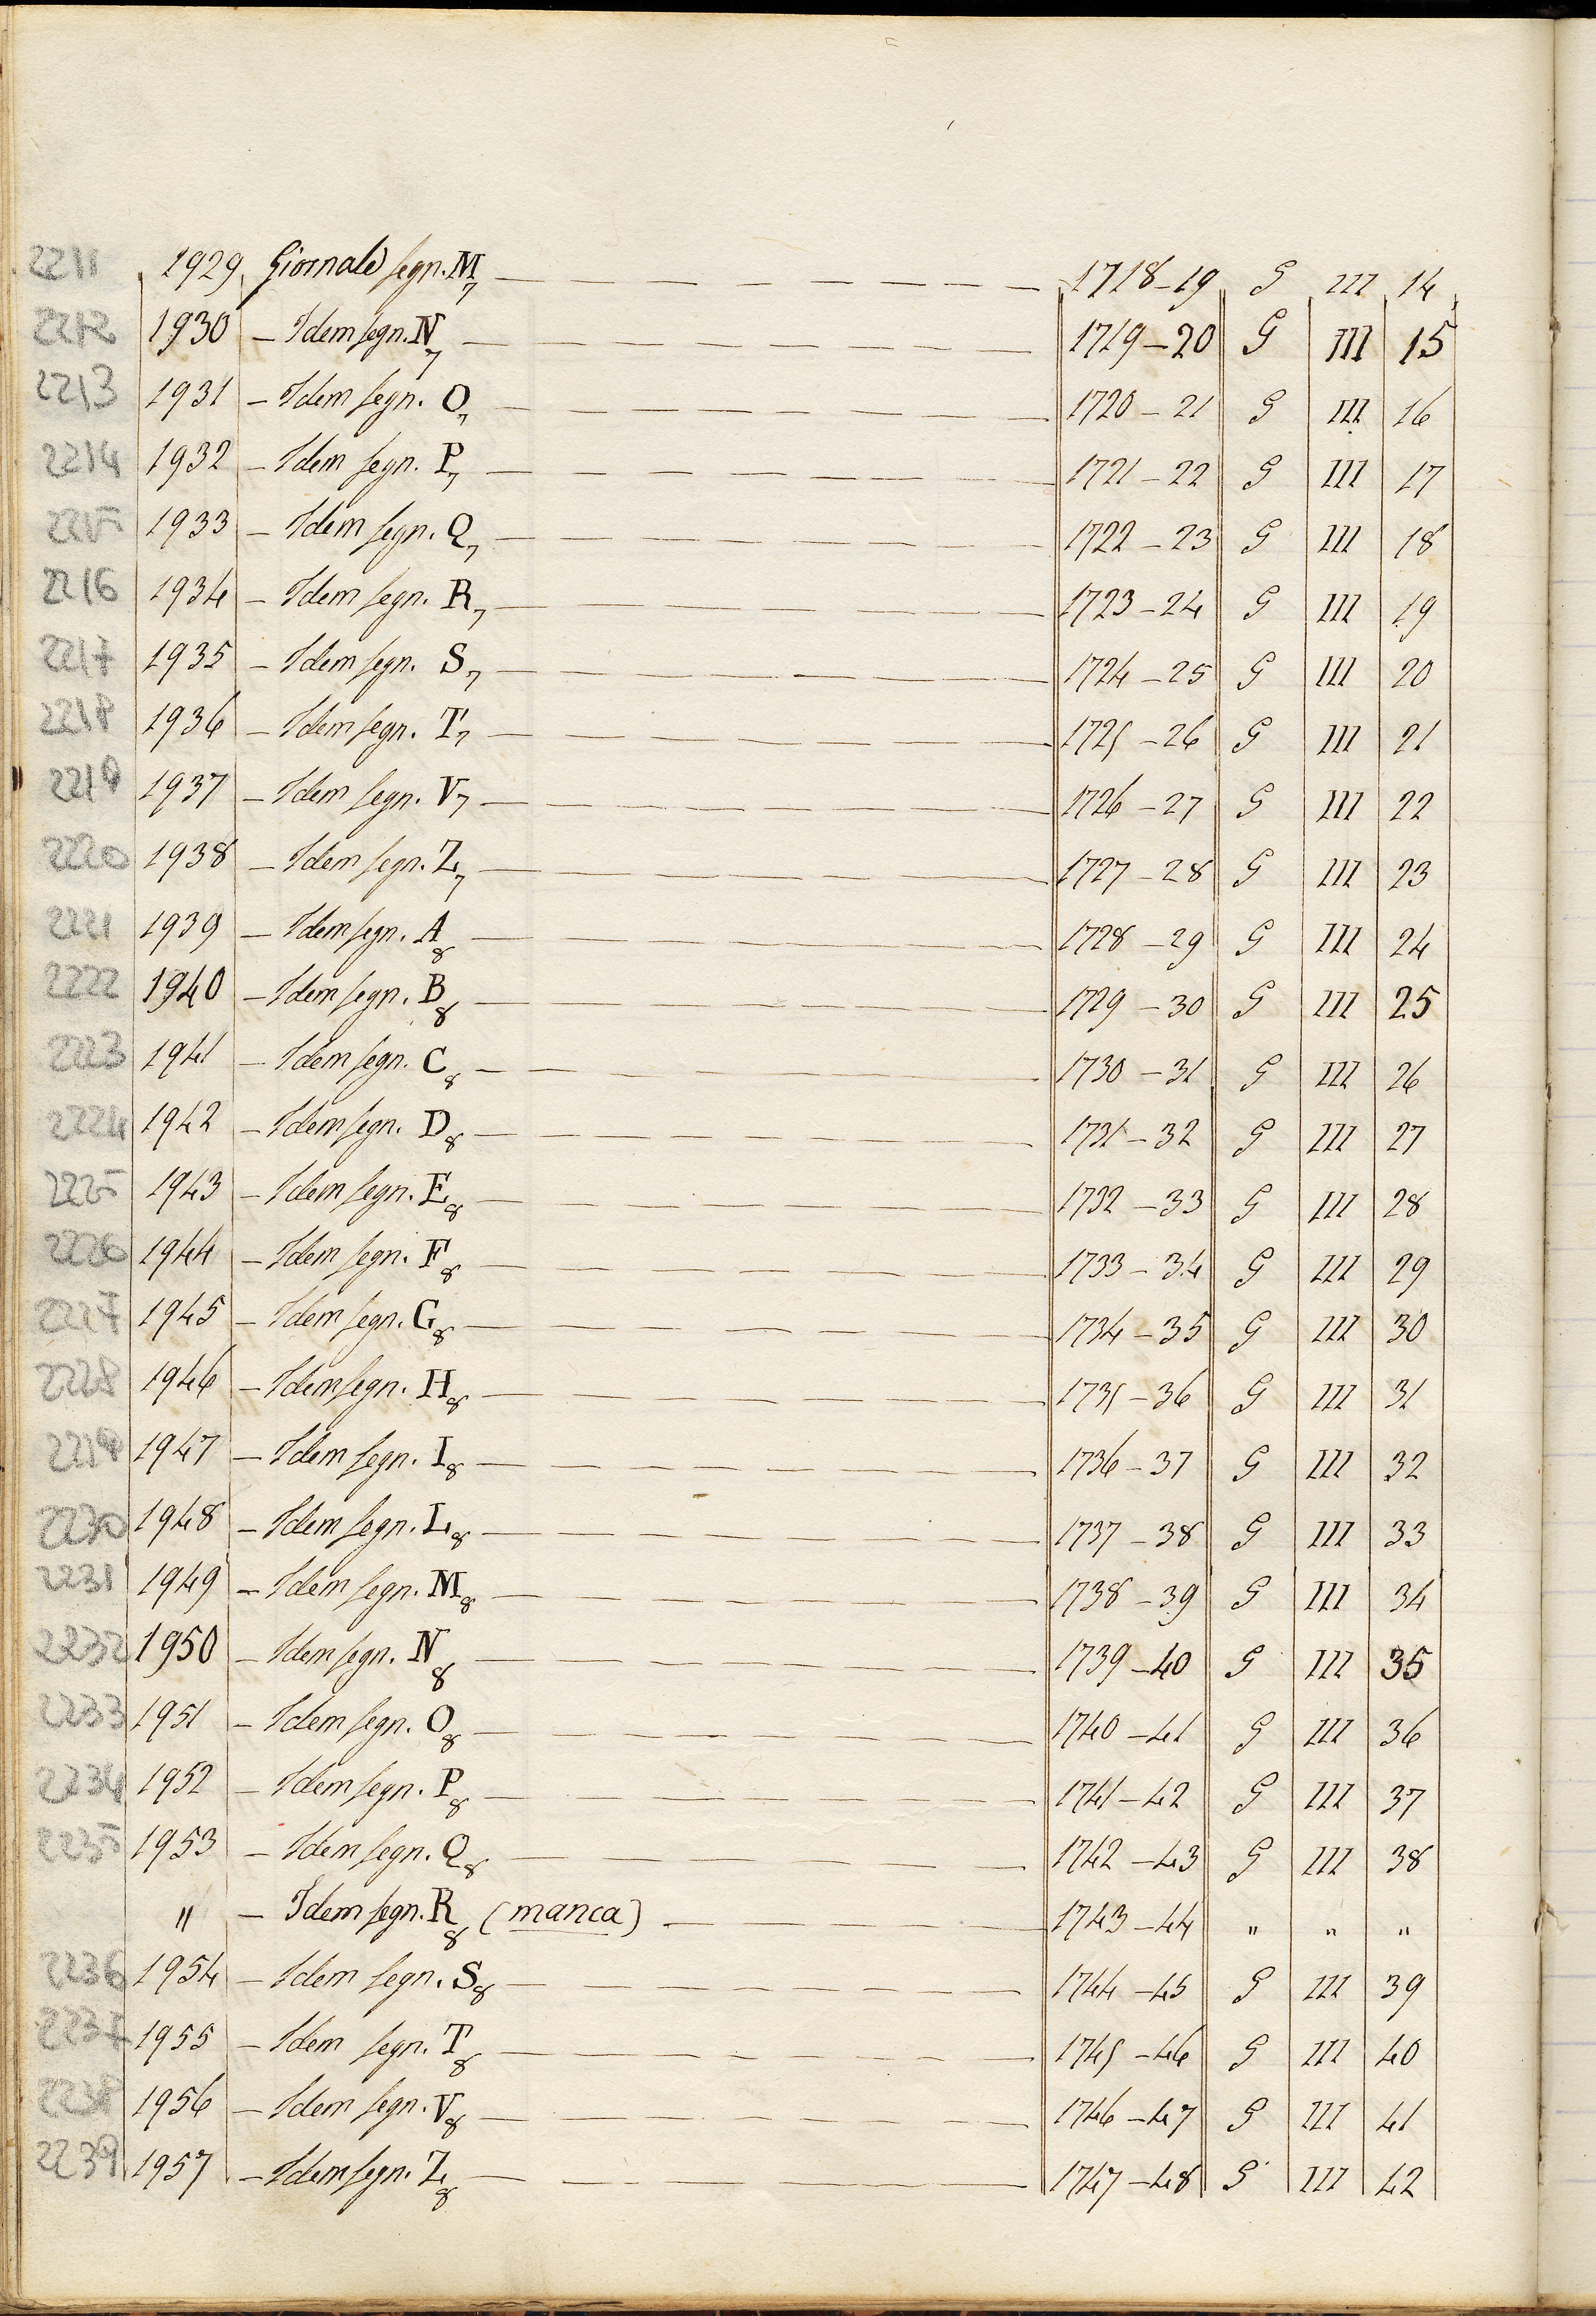 2211 1929 Giornale segn. M7 1718-19 G III 14
2212 1930 - Idem segn. N7 1719-20 G III 15
2213 1931 - Idem segn. O7 1720-21 G III 16
2214 1932 - Idem segn. P7 1721-22 G III 17
2215 1933 - Idem segn. Q7 1722-23 G III 18
2216 1934 - Idem segn. R7 1723-24 G III 19
2217 1935 - Idem segn. S7 1724-25 G III 20
2218 1936 - Idem segn. T7 1725-26 G III 21
2219 1937 - Idem segn. V7 1726-27 G III 22
2220 1938 - Idem segn. Z7 1727-28 G III 23
2221 1939 - Idem segn. A8 1728-29 G III 24
2222 1940 - Idem segn. B8 1729-30 G III 25
2223 1941 - Idem segn. C8 1730-31 G III 26
2224 1942 - Idem segn. D8 1731-32 G III 27
2225 1943 - Idem segn. E8 1732-33 G III 28
2226 1944 - Idem segn. F8 1733-34 G III 29
2227 1945 - Idem segn. G8 1734-35 G III 30
2228 1946 - Idem segn. H8 1735-36 G III 31
2229 1947 - Idem segn. I8 1736-37 G III 32
2230 1948 - Idem segn. L8 1737-38 G III 33
2231 1949 - Idem segn. M8 1738-39 G III 34
2232 1950 - Idem segn. N8 1739-40 G III 35
2233 1951 - Idem segn. O8 1740-41 G III 36
2234 1952 - Idem segn. P8 1741-42 G III 37
2235 1953 - Idem segn. Q8 1742-43 G III 38
" - Idem segn. R8 (manca) 1743-44 " " "
2236 1954 - Idem segn. S8 1744-45 G III 39
2237 1955 - Idem segn. T8 1745-46 G III 40
2238 1956 - Idem segn. V8 1746-47 G III 41
2239 1957 - Idem segn. Z8 1747-48 G III 42